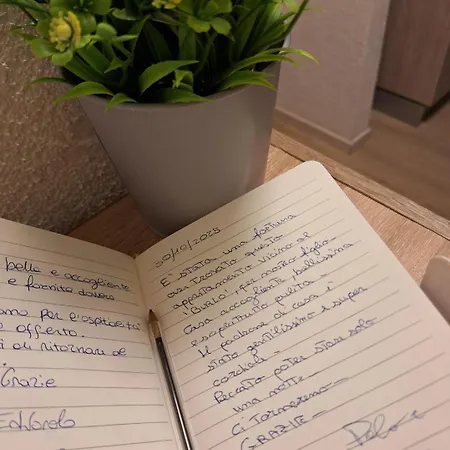 bello e accogliente
e fornito davvero
amo per l'ospitalità
e offerto.
di ritornare
Grazie
Edoardo
30/10/2025
E' stata una fortuna
aver trovato questo
appartamento vicino al
per nostro figlio
Casa accogliente bellissima
e soprattutto pulita -
Il padrone di casa è
stato gentilissimo e super
cordiale -
Peccato poter stare solo
una notte -
Ci torneremo -
GRAZIE -